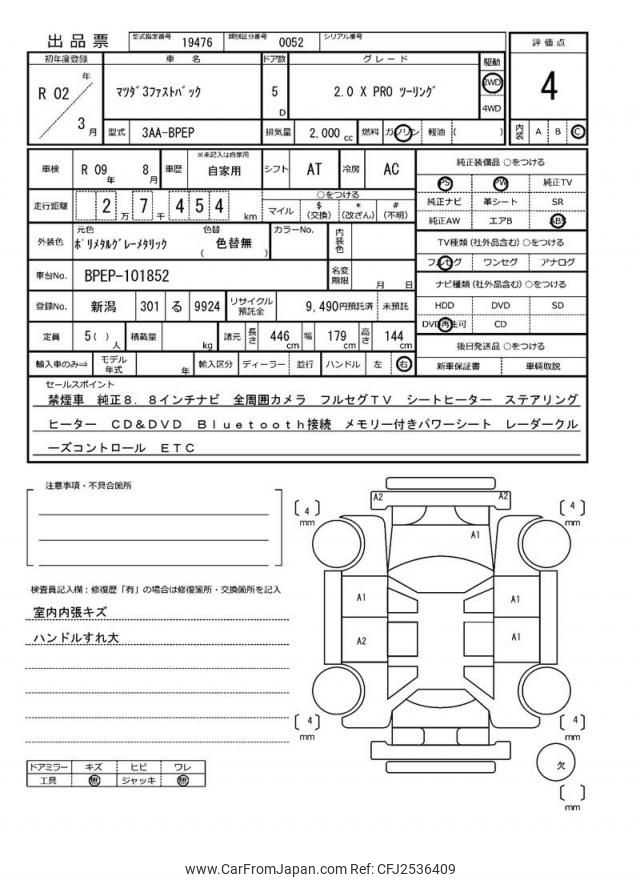 出品票 型式指定番号 19476 類別区分番号 0052 シリアル番号
初年度登録 車名 ドア数 グレード 駆動 評価点
R 02 年 3 月 マツダ3ファストバック 5 D 2.0 X PRO ツーリング 2WD 4WD 4
型式 3AA-BPEP 排気量 2,000 cc 燃料 ガソリン 軽油 ( ) 内装 A B C
車検 R 09 年 8 月 車歴 ※未記入は自家用 自家用 シフト AT 冷房 AC 純正装備品 ○をつける
PS PW 純正TV
走行距離 2 万 7 千 4 5 4 km ○をつける マイル $ (交換) * (改ざん) # (不明) 純正ナビ 革シート SR
純正AW エアB ABS
外装色 元色 ポリメタルグレーメタリック 色替 ( 色替無 ) カラーNo. 内装色 TV種類 (社外品含む) ○をつける
フルセグ ワンセグ アナログ
車台No. BPEP-101852 名変期限 月 日 ナビ種類 (社外品含む) ○をつける
登録No. 新潟 301 る 9924 リサイクル預託金 9,490円預託済 未預託 HDD DVD SD
DVD再生可 CD
定員 5 ( ) 人 積載量 kg 諸元 長さ 446 cm 幅 179 cm 高さ 144 cm 後日発送品 ○をつける
輸入車のみ⇒ モデル年式 年 輸入区分 ディーラー 並行 ハンドル 左 右 新車保証書 車輌取説
セールスポイント
禁煙車 純正8.8インチナビ 全周囲カメラ フルセグTV シートヒーター ステアリング
ヒーター CD&DVD Bluetooth接続 メモリー付きパワーシート レーダークル
ーズコントロール ETC
注意事項・不具合箇所
検査員記入欄：修復歴「有」の場合は修復箇所・交換箇所を記入
室内内張キズ
ハンドルすれ大
ドアミラー キズ ヒビ ワレ
工具 無 ジャッキ 無
A2 A2
4 mm
4 mm
A1
A1 A1
A2 A1
4 mm
4 mm
欠
mm
www.CarFromJapan.com Ref: CFJ2536409